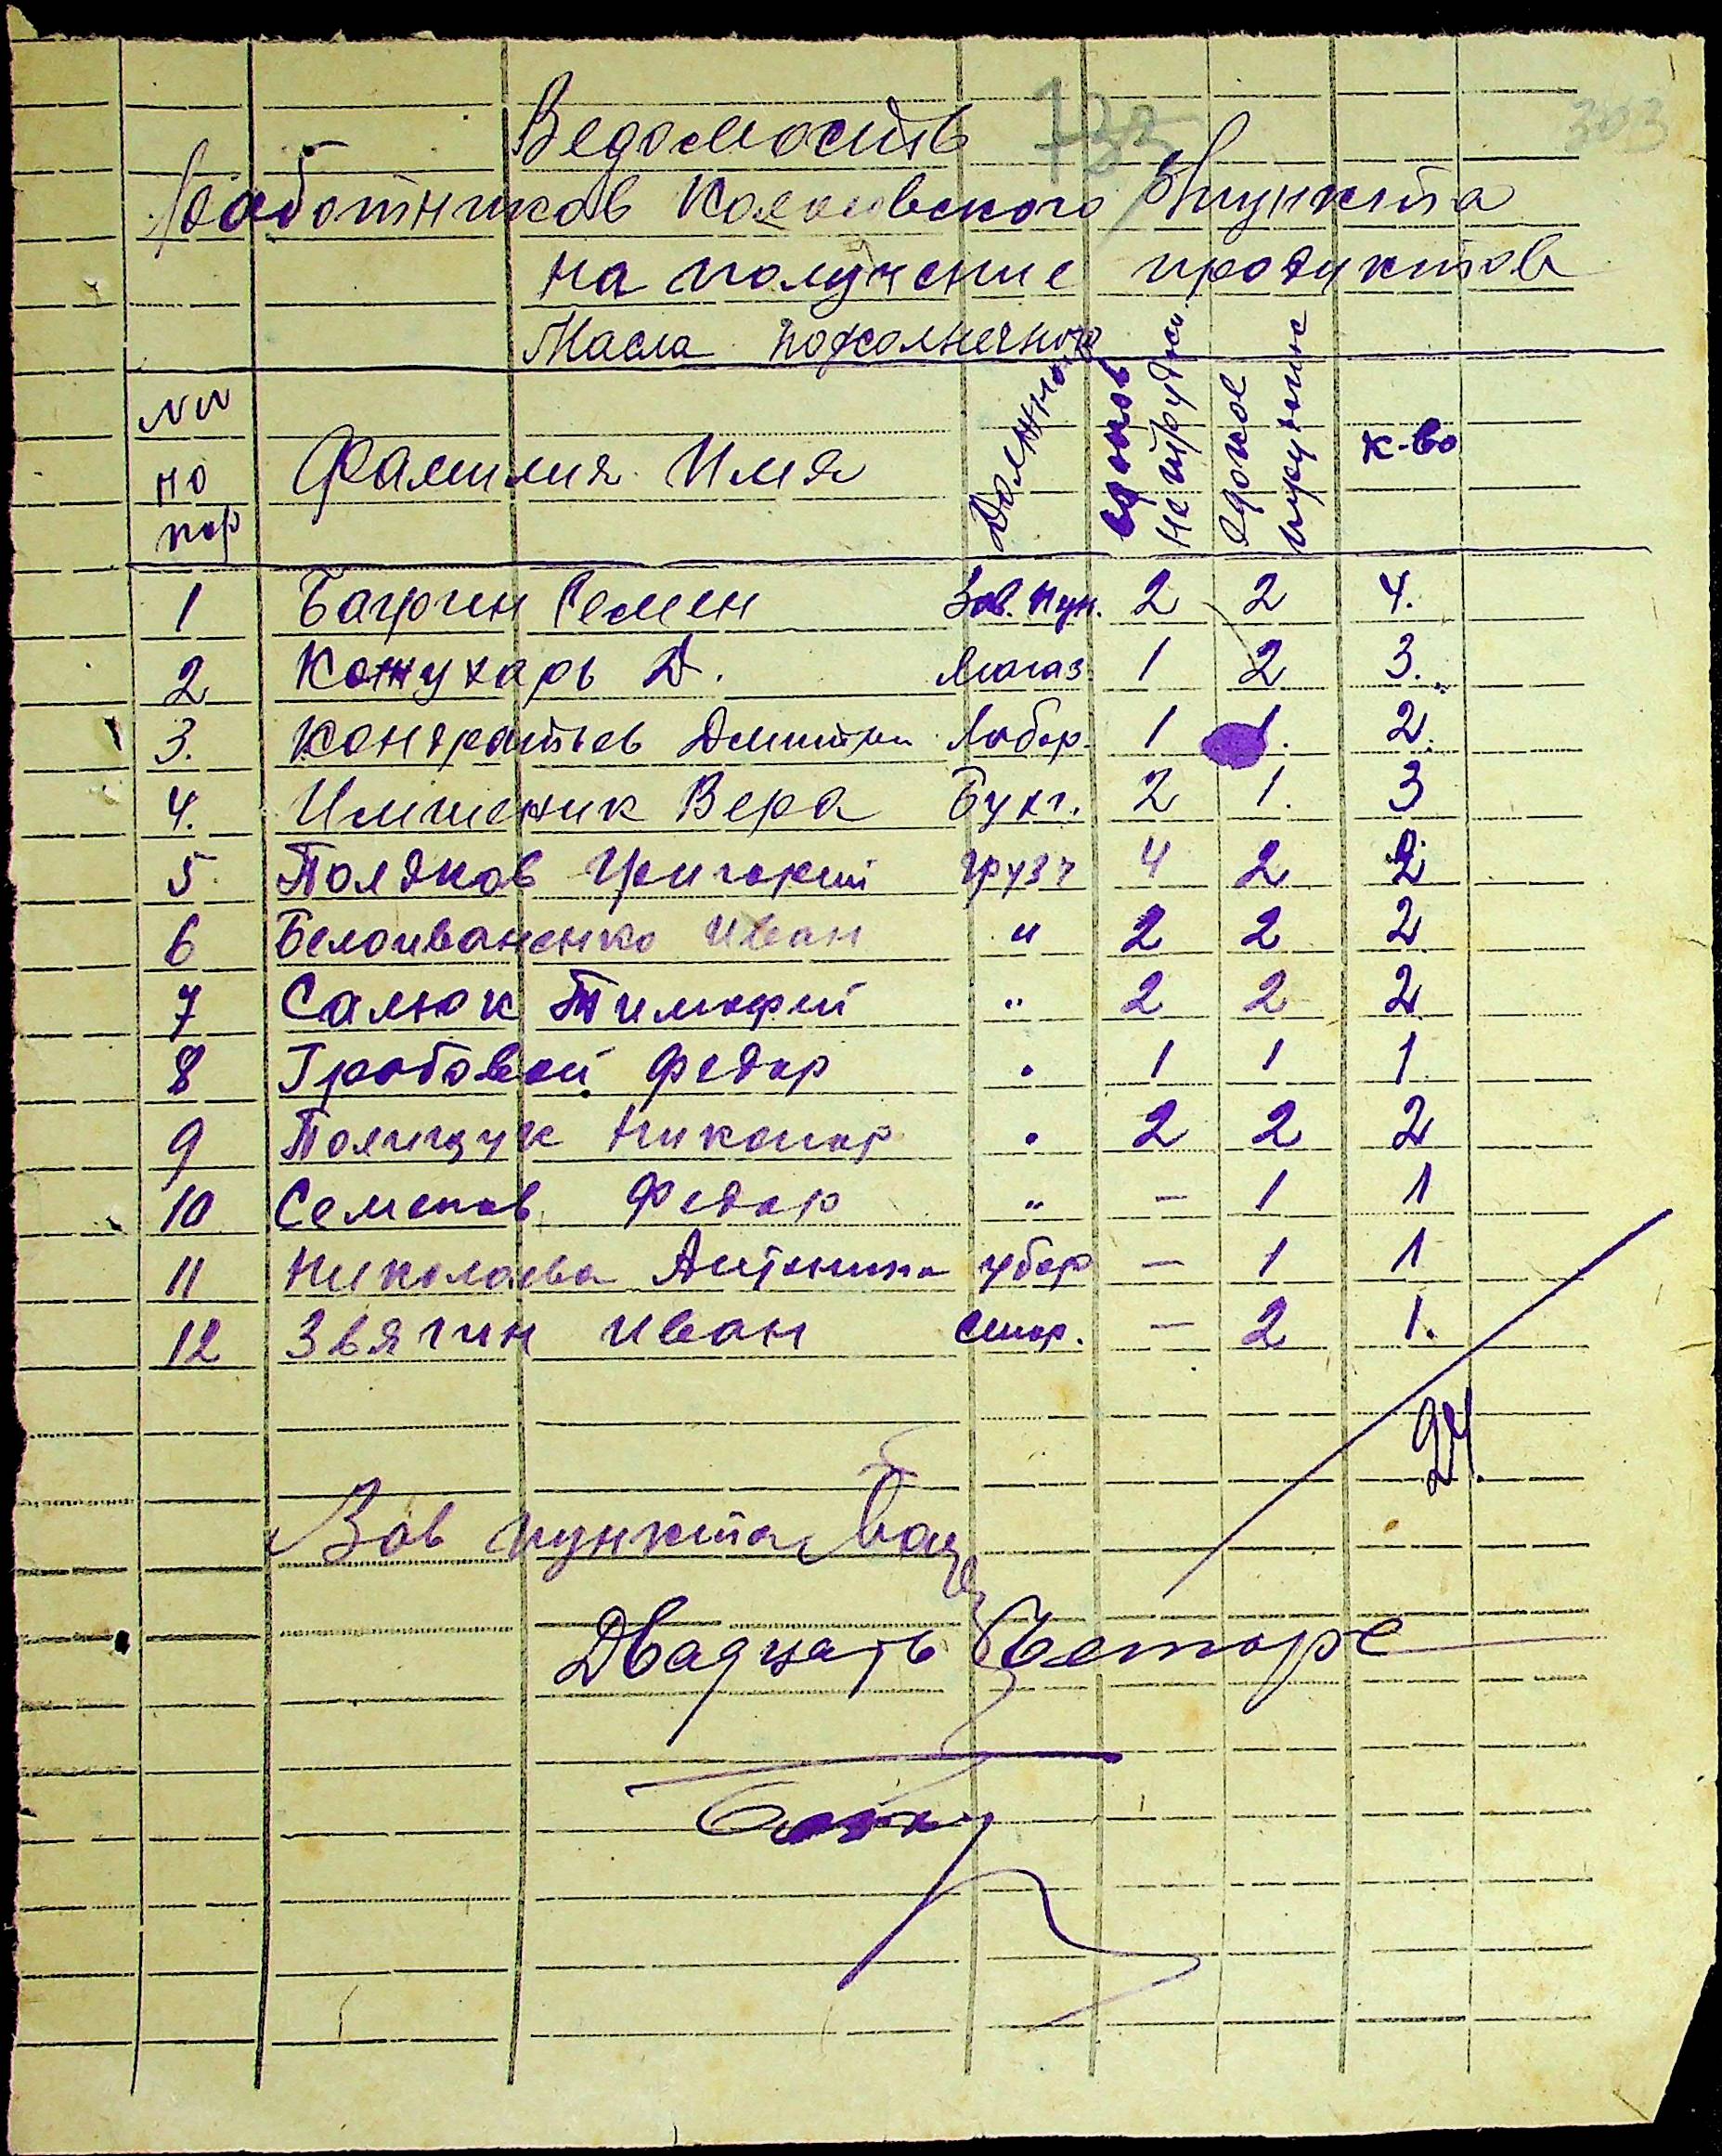 Ведомость 733
303
Работников Колосовского пункта
на получение продуктов
Масла подсолнечного
NN но пор Фамилия Имя Должно едоков не трудосп. едоков трудосп к-во
1 Бацрин Семен Зав. пун. 2 2 4.
2 Кожухарь Д. Магаз 1 2 3.
3. Кондратьев Дмитри Лабор. 1 1. 2.
4. Имшеник Вера Бухг. 2 1. 3
5 Поядков Григорий грузч 4 2 2
6 Белоиваненко Иван " 2 2 2
7 Салюк Тимофей " 2 2 2
8 Гробовой Федор " 1 1 1
9 Полищук Никонор " 2 2 2
10 Семенов Федор " — 1 1
11 Николаева Антонина убор — 1 1
12 Звягин Иван стор. — 2 1.
24.
Зав пункта
Двадцать Четоре